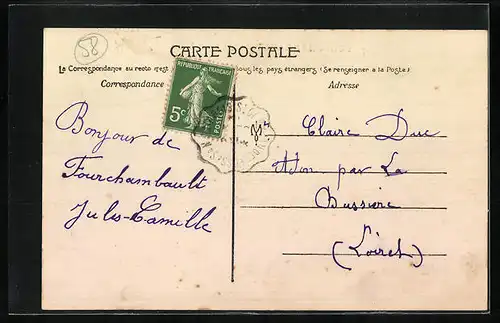 58
CARTE POSTALE
La Correspondance au recto n'est
tous les pays étrangers (Se renseigner à la Poste)
Correspondance
Adresse
REPUBLIQUE FRANÇAISE
5c
POSTES
Bonjour de
Fourchambault
Jules-Camille
Mlle
Claire Duc
Adon par La
Bussiere
(Loiret)